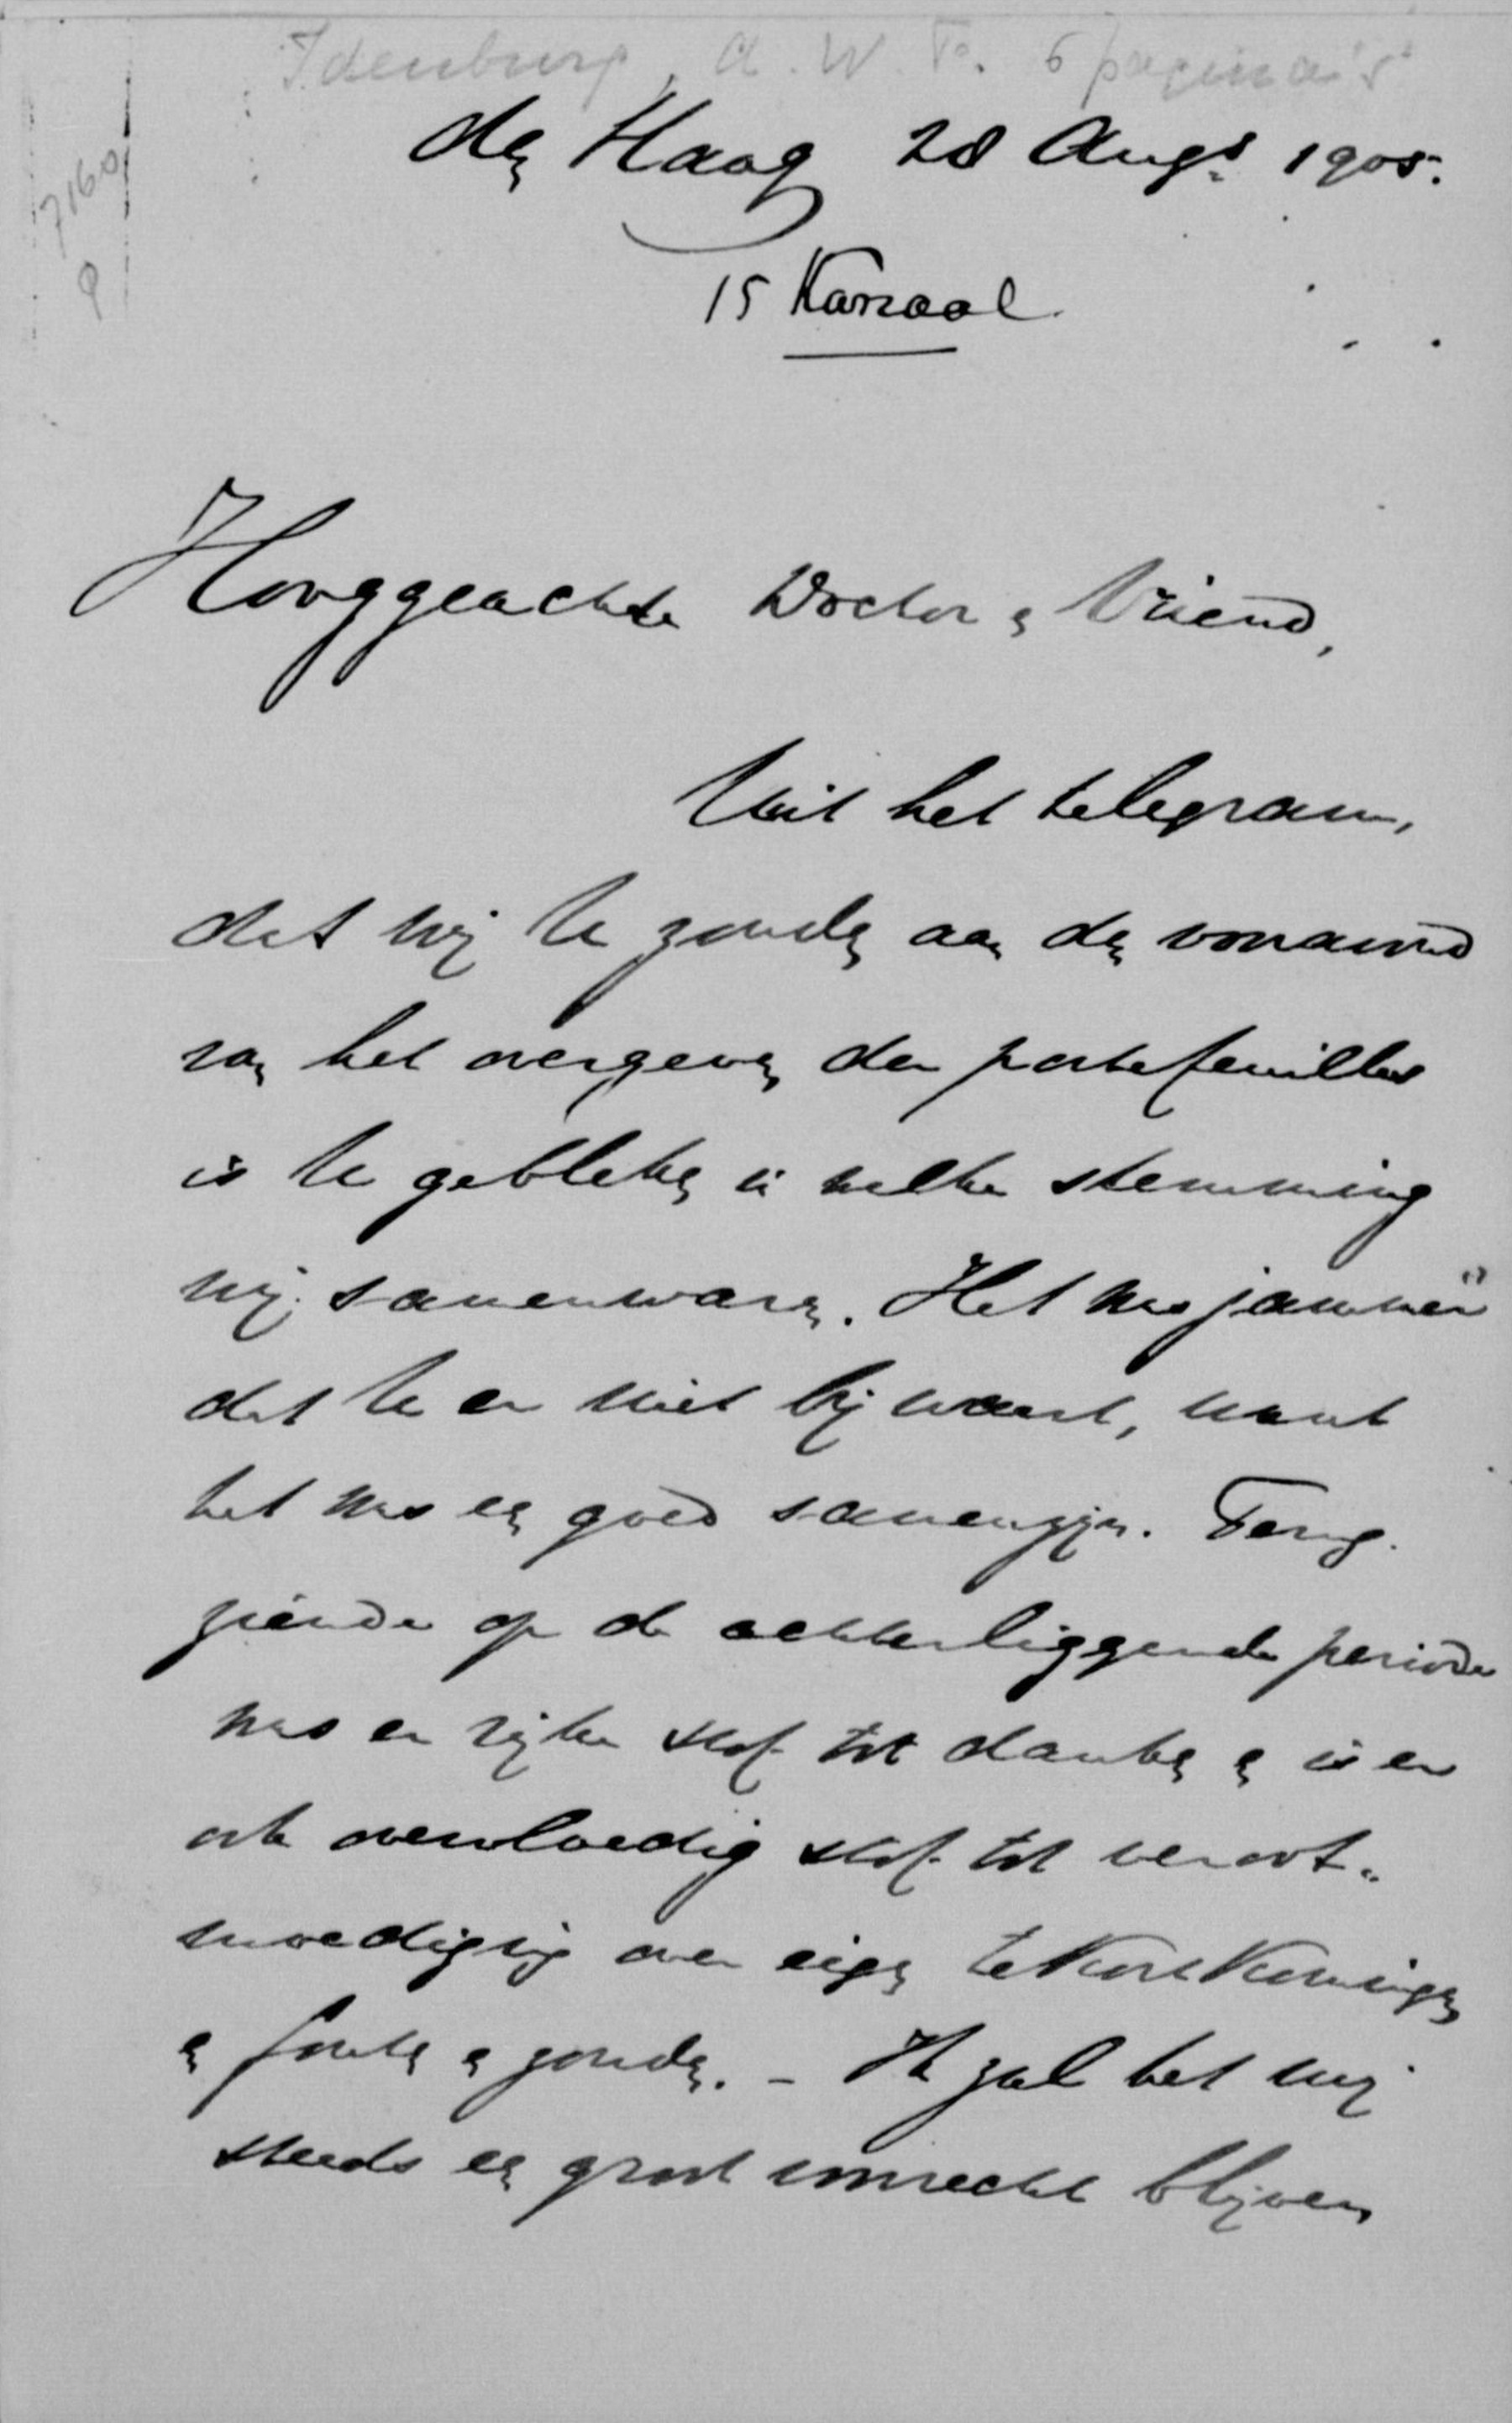 Idenburg, A. W. F. 6 pagina's
7160
9
den Haag 28 Augs 1905.
15 Kanaal
Hooggeachte Doctor en Vriend,
Uit het telegram,
dat wij U zonden aan den vooravond
van het overgeven der portefeuilles
is U gebleken in welke stemming
wij samenwaren. Het was jammer
dat U er niet bij waart, want
het was een goed samenzijn. Terug-
ziende op de achterliggende periode
was er rijke stof tot danken en is er
ook overvloedig stof tot veroot-
moediging over eigen tekortkomingen
en fouten en zonden. - Ik zal het mij
steeds een groot voorrecht blijven